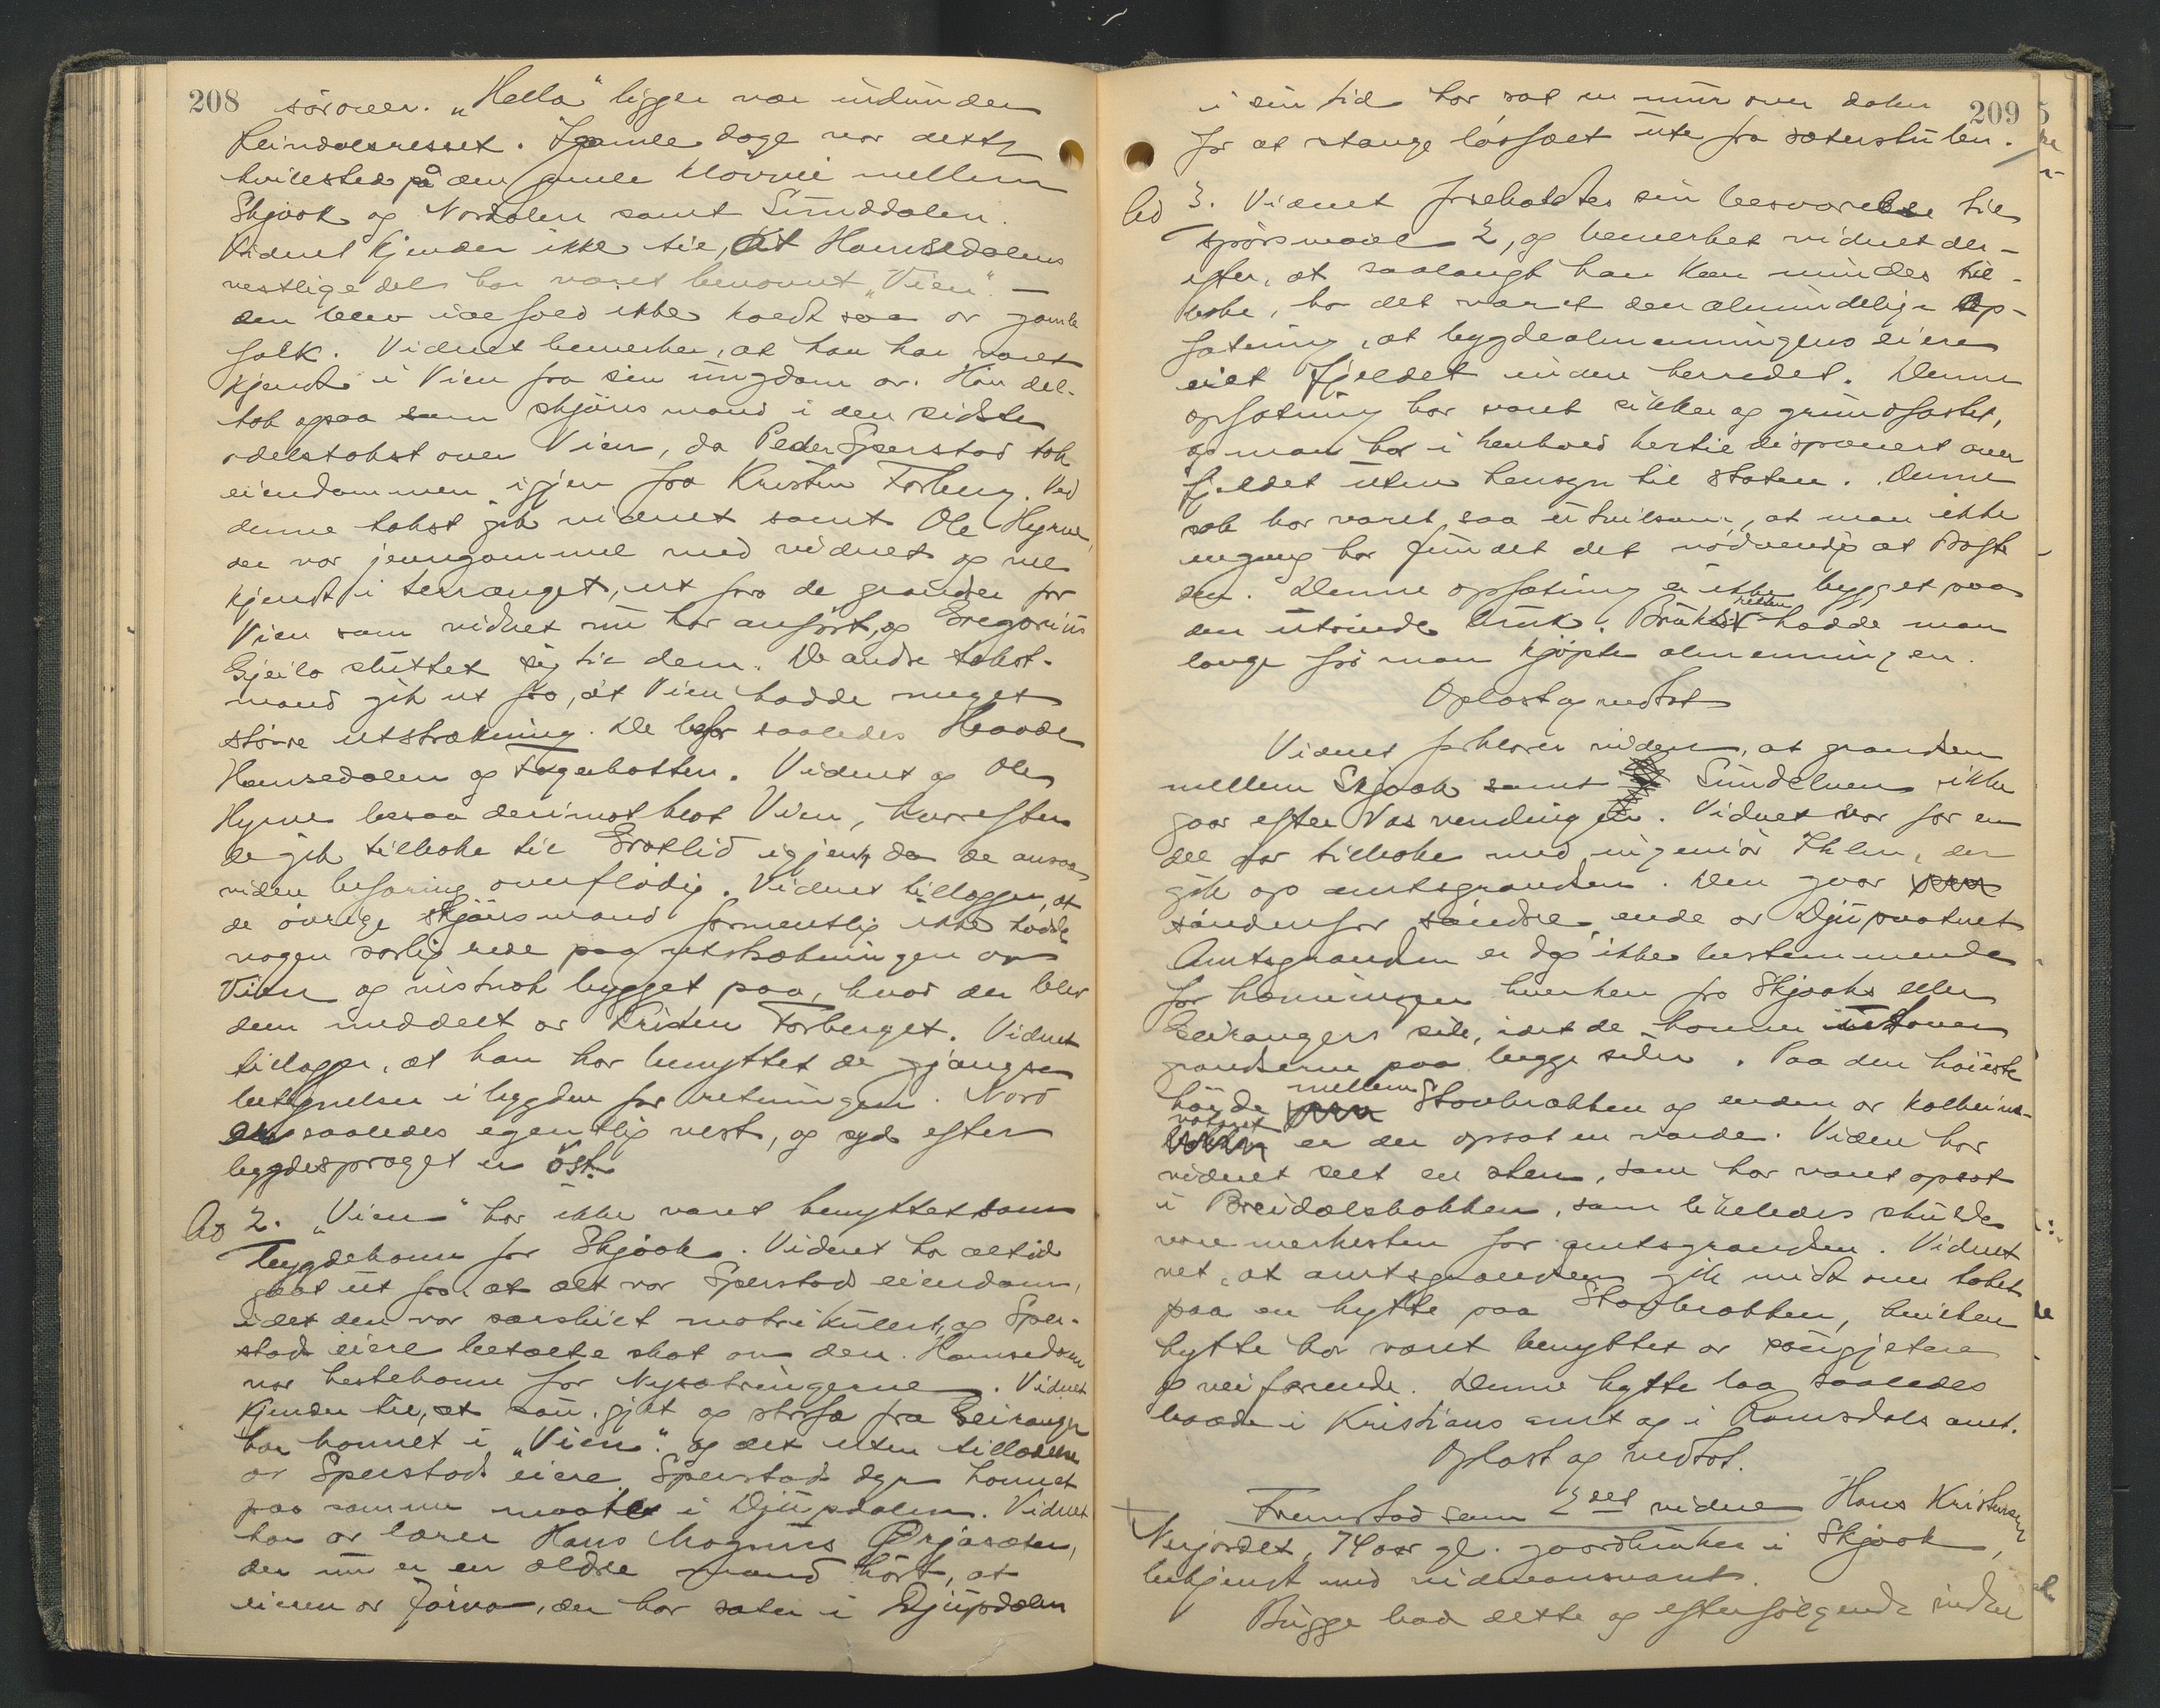 208
sörover. „Hella" ligger vær indunder
Reindalsresset. I gamle dage var dette
hvilested på den gamle kløvvei mellem
Skjaak og Nordalen samt Sunddalen.
Vidnet kjender ikke til, at Hamsedalens
vestlige del har været benævnt „Vien". —
den blev ialfald ikke kaldt saa av gamle
folk. Vidnet bemerker, at han har været
kjendt i Vien fra sin ungdom av. Han del-
tok ogsaa som skjønsmand i den sidste
odelstakst over Vien, da Peder Sperstad tok
eiendommen igjen fra Kristen Forberg. Ved
denne takst gik vidnet samt Ole Hyrve,
der var jevngammel med vidnet og vel
kjendt i terrænget, ut fra de grænder for
Vien som vidnet nu har anført, og Gregorius
Gjeilo sluttet sig til dem. De andre takst-
mænd gik ut fra, at Vien hadde meget
större utstrækning. De befor saaledes
Hamsedalen og Fagerbotten. Vidnet og Ole
Hyrve besaa derimot blot Vien, hvorefter
de gik tilbake til Grotlid igjen, da de ansaa
viden befaring overflödig. Vidnet tillægger, at
de övrige skjönsmænd formentlig ikke hadde
nogen særlig rede paa utstrækningen av
Vien og nistnok bygget paa, hvad der blev
dem meddelt av Kristen Forberget. Vidnet
tillægger, at han har benyttet de gjængse
betegnelser i bygden for retningen. Nord
er saaledes egentlig vest, og syd efter
bygdesproget er öst.
Ad 2. „Vien" har ikke været benyttet som
bygdehavn for Skjaak. Vidnet har altid
gaat ut fra, at alt var Sperstads eiendom,
idet den var særskilt matrikulert, og Sper-
stads eiere betalte skat av den. Hamsedalen
var hestehavn for Nysætringerne. Vidnet
kjender til, at sau, gjet og storfæ fra Geiranger
har havnet i „Vien" og det uten tilladelse
av Sperstads eiere. Sperstads dyr havnet
paa samme maate i Djupdalen. Vidnet
har av lærer Hans Magnus Ørjasæter,
der nu er en ældre mand hört, at
eieren av, der har sæter i Djupdalen
209
i sin tid har sat en mur over dalen
for at stænge lösfæet ute fra sæterstulen.
Ad 3. Vidnet foreholdtes sin besvarelse til
spörsmaal 2, og bemerket vidnet der-
efter, at saalangt han kan mindes til-
bake, har det været den almindelige op-
fatning, at bygdealmenningens eiere
eiet fjeldet inden herredet. Denne
opfatning har været sikker og grundfæstet,
og man har i henhold hertil disponert over
fjeldet uten hensyn til staten. Denne
sak har været saa utvilsom, at man ikke
engang har fundet det nödvendig at drøfte
den. Denne opfatning er ikke bygget paa
den utvinde bruk. Bruksretten hadde man
længe för man kjöpte almenningen.
Oplæst og vedtat
Vidnet forklarer viden, at grænsen
mellem Skjaak samt Sundelven ikke
gaar efter vasvendingen. Vidnet var for en
del aar tilbake med ingeniör Ihlen, der
gik op amtsgrænsen. Den gaar
söndenfor söndre ende av Djupvatnet
Amtsgrænsen er dog ikke bestemmende
for havningen hverken fra Skjaaks eller
Geirangers side, idet de havner utover
grænserne paa begge sider. Paa den höieste
höide mellem Stavbrækken og enden av Kolbeins-
vatnet er der opsat en varde. Viden har
vidnet seet en sten, som har været opsat
i Breidalsbakken, som likeledes skulde
være merkesten for amtsgrænsen. Vidnet
vet, at amtsgrænsen gik midt over taket
paa en hytte paa Stavbrækken, hvilken
hytte har været benyttet av sauegjetere
og veifarende. Denne hytte laa saaledes
baade i Kristians amt og i Romsdals amt.
Oplæst og vedtat.
Fremstod som 2det vidne Hans Kristensen
Nerjordet, 74 aar gl. gaardbruker i Skjaak,
bekjendt med vidneansvaret.
Bugge bad dette og efterfölgende vidner